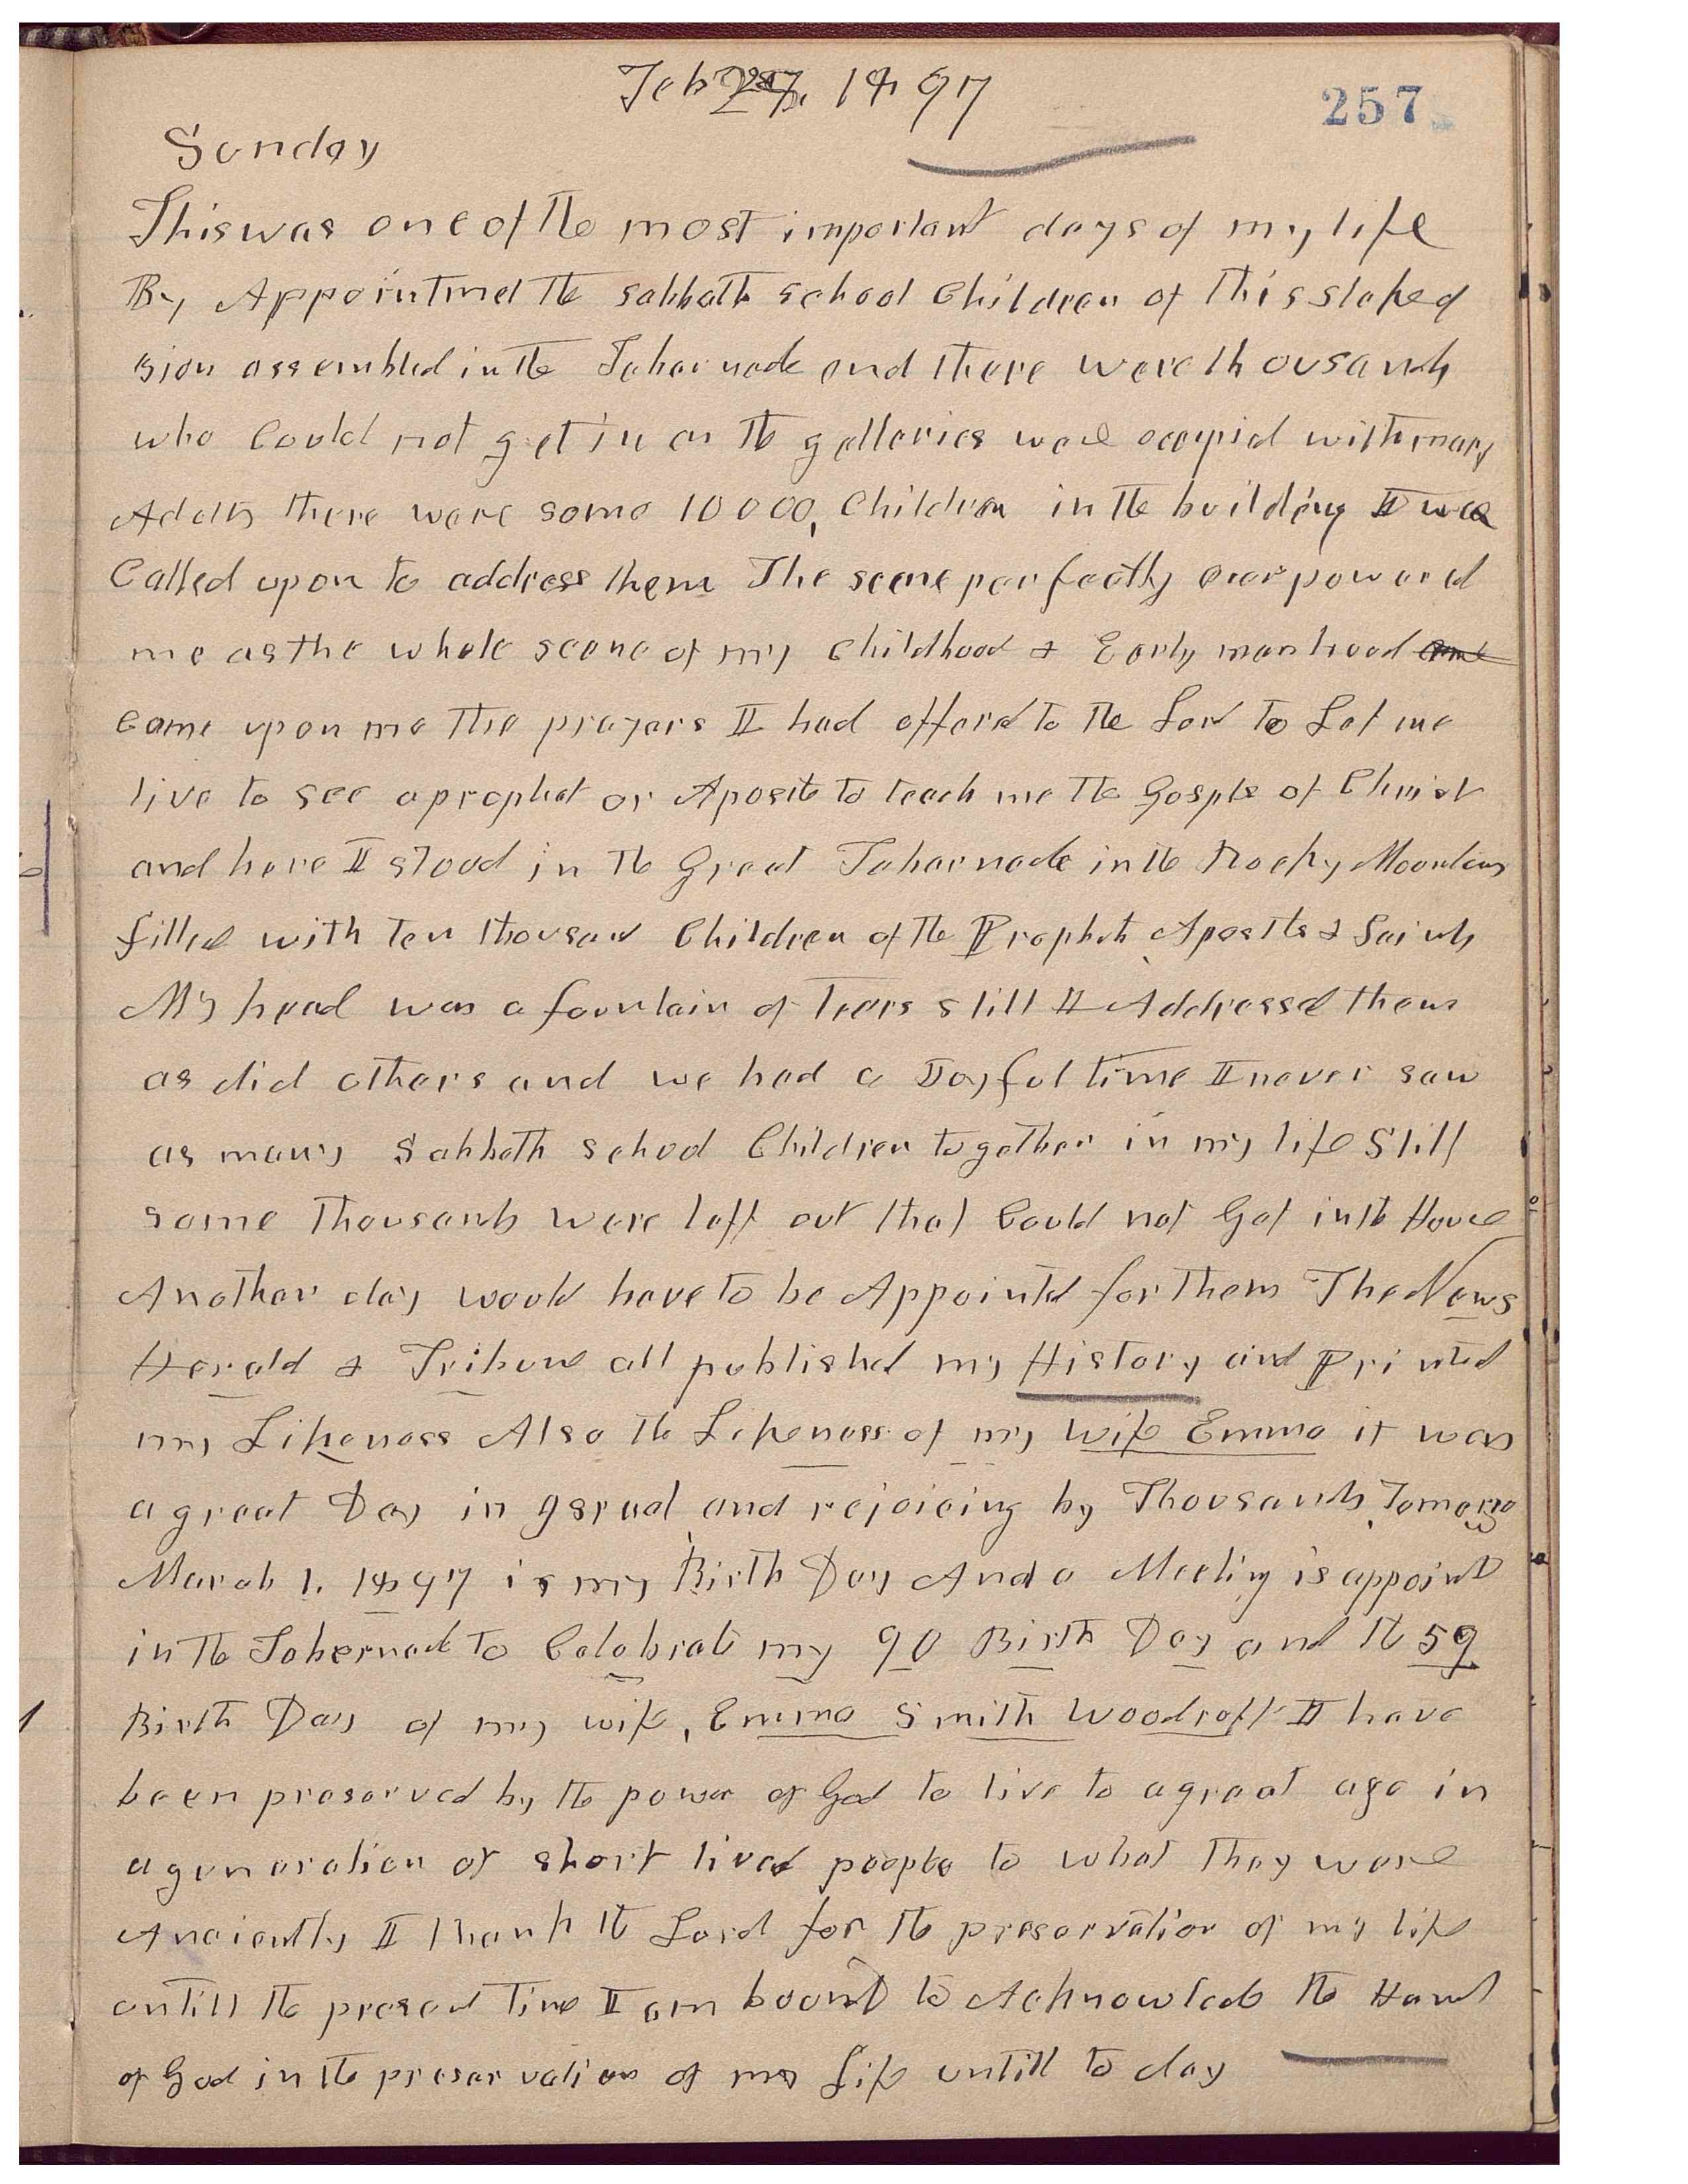 Feb 28, 1897
257
Sunday
This was one of the most important days of my life
By Appointmet the sabbath school Children of this stake of
Zion assembled in the Tabernacle and there were thousands
who Could not get in as the galleries were occupid with many
Adults there were some 10000, Children in the building I was
Called upon to address them The scene perfectly overpowered
me as the whole scene of my Childhood & Early manhood came
Came upon me the prayers I had offerd to the Lord to Let me
live to see a prophet or Apostle to teach me the Gosple of Christ
and here I stood in the Great Tabernacle in the Rocky Mountains
filled with ten thousand Children of the Prophets Apostles & Saints
My head was a fountain of tears still I Addressed them
as did others and we had a Joyful time I never saw
as many Sabbath school Children together in my life Still
some Thousands were left out that Could not Get in the House
Another day would have to be Appointed for them The News
Herald & Tribune all published my History and Printed
my Likeness Also the Likeness of my wife Emma it was
a great Day in Israel and rejoicing by Thousands, Tomorrow
March 1. 1897 is my Birth Day And a Meeting is appoint
in the Tabernacle to Celebrate my 90 Birth Day and the 59
Birth Day of my wife, Emma Smith Woodruff I have
been preserved by the power of God to live to a great age in
a generation of short lived people to what they were
Anciently I thank the Lord for the preservation of my life
untill the present time I am bound to Acknowledge the Hand
of God in the preservation of my Life untill to day